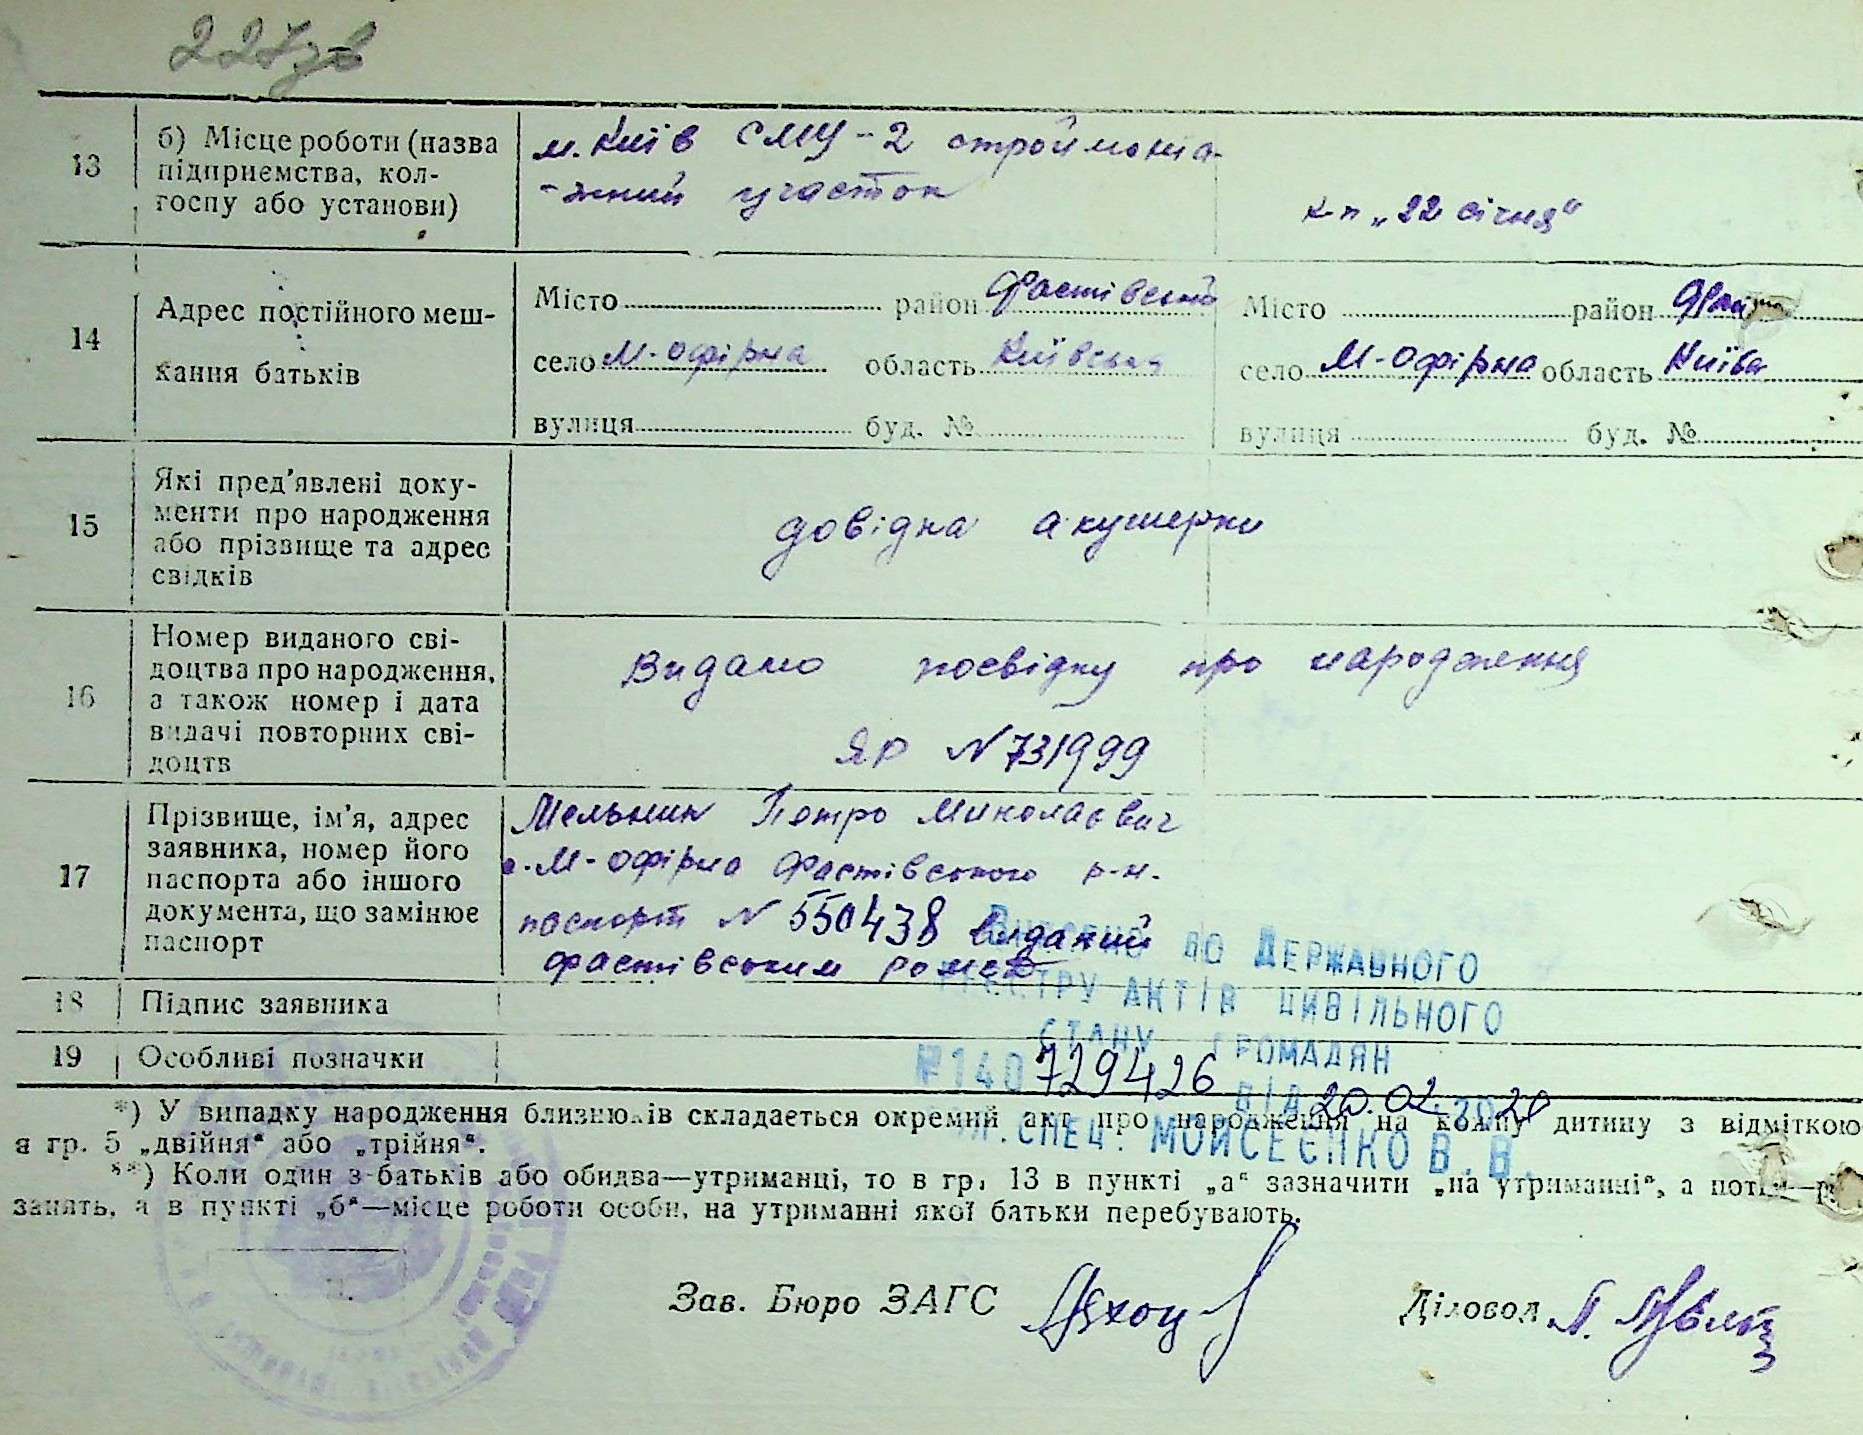 13
б) Місце роботи (назва
підприємства, кол-
госпу або установи)
м. Київ СМУ-2 строймонта-
-жний участок
к-п „22 січня“
14
Адрес постійного меш-
кання батьків
Місто район Фастівський
село М-Офірна область Київська
вулиця буд. №
Місто район
село М-Офірна область Київсь
вулиця буд. №
15
Які пред'явлені доку-
менти про народження
або прізвище та адрес
свідків
довідка акушерки
16
Номер виданого сві-
доцтва про народження,
а також номер і дата
видачі повторних сві-
доцтв
Видано посвідку про народження
ЯР N 731999
17
Прізвище, ім'я, адрес
заявника, номер його
паспорта або іншого
документа, що замінює
паспорт
Мельник Петро Миколаєвич
с. М-Офірна Фастівського р-н.
паспорт N 550438 виданий
Фастівським
18
Підпис заявника
19
Особливі позначки
Внесено до Державного
реєстру актів цивільного
стану громадян
№140729426
від 20.02.2020
гл. спец. Мойсеєнко В.В.
*) У випадку народження близнюків складається окремий акт про народження на кожну дитину з відміткою
в гр. 5 „двійня“ або „трійня“.
**) Коли один з батьків або обидва—утриманці, то в гр. 13 в пункті „а“ зазначити „на утриманні“, а потім—рід
занять, а в пункті „б“—місце роботи особи, на утриманні якої батьки перебувають.
Зав. Бюро ЗАГС
Діловод